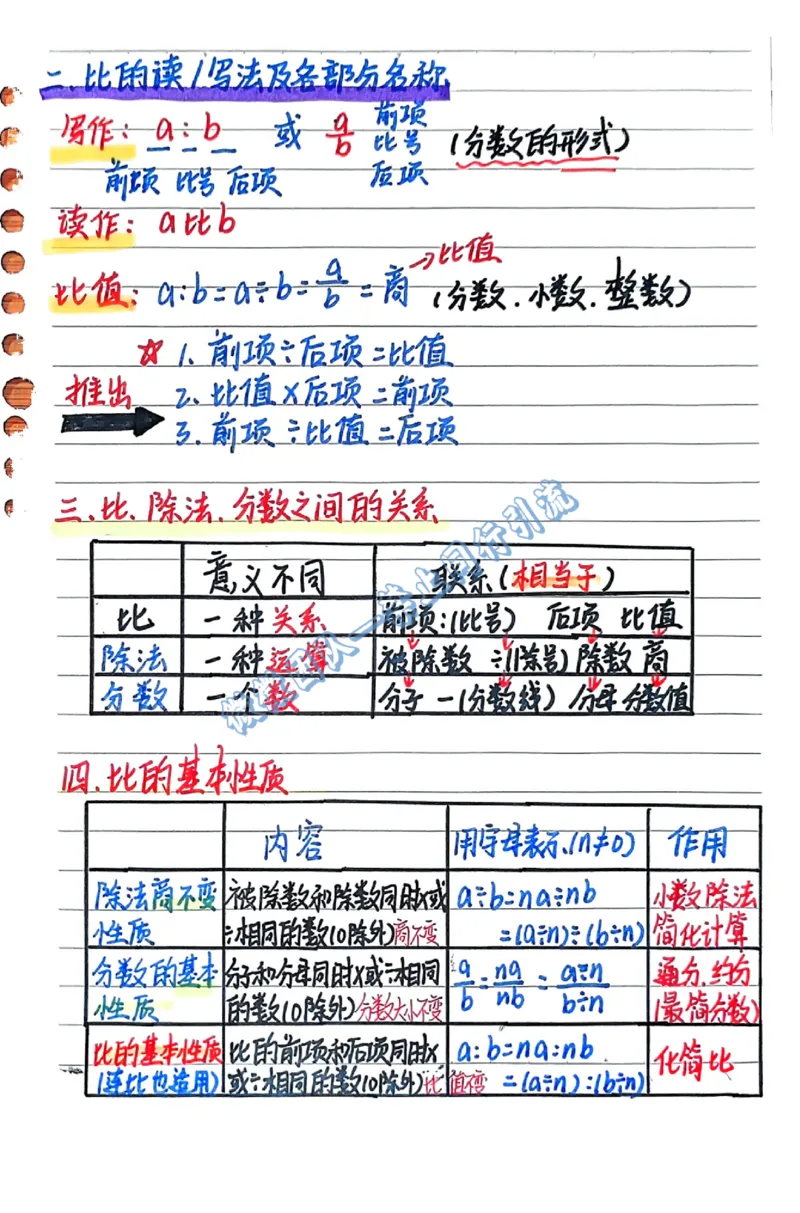 二.比的读/写法及各部分名称
写作: a:b 或 a/b 前项 比号 后项 (分数的形式)
前项 比号 后项
读作: a比b
→比值
比值: a:b=a÷b=a/b=商 (分数.小数.整数)
☆ 1. 前项÷后项=比值
推出 2. 比值×后项=前项
3. 前项÷比值=后项
三.比.除法.分数之间的关系
意义不同 联系(相当于)
比 一种关系 前项:(比号) 后项 比值
除法 一种运算 被除数 ÷(除号) 除数 商
分数 一个数 分子 —(分数线) 分母 分数值
四.比的基本性质
内容 用字母表示.(n≠0) 作用
除法商不变 被除数和除数同时×或 a÷b=na÷nb 小数除法
性质 ÷相同的数(0除外)商不变 =(a÷n)÷(b÷n) 简化计算
分数的基本 分子和分母同时×或÷相同 a/b=na/nb=a÷n/b÷n 通分.约分
性质 的数(0除外)分数大小不变 (最简分数)
比的基本性质 比的前项和后项同时× a:b=na:nb 化简比
(连比也适用) 或÷相同的数(0除外)比值不变 =(a÷n):(b÷n)